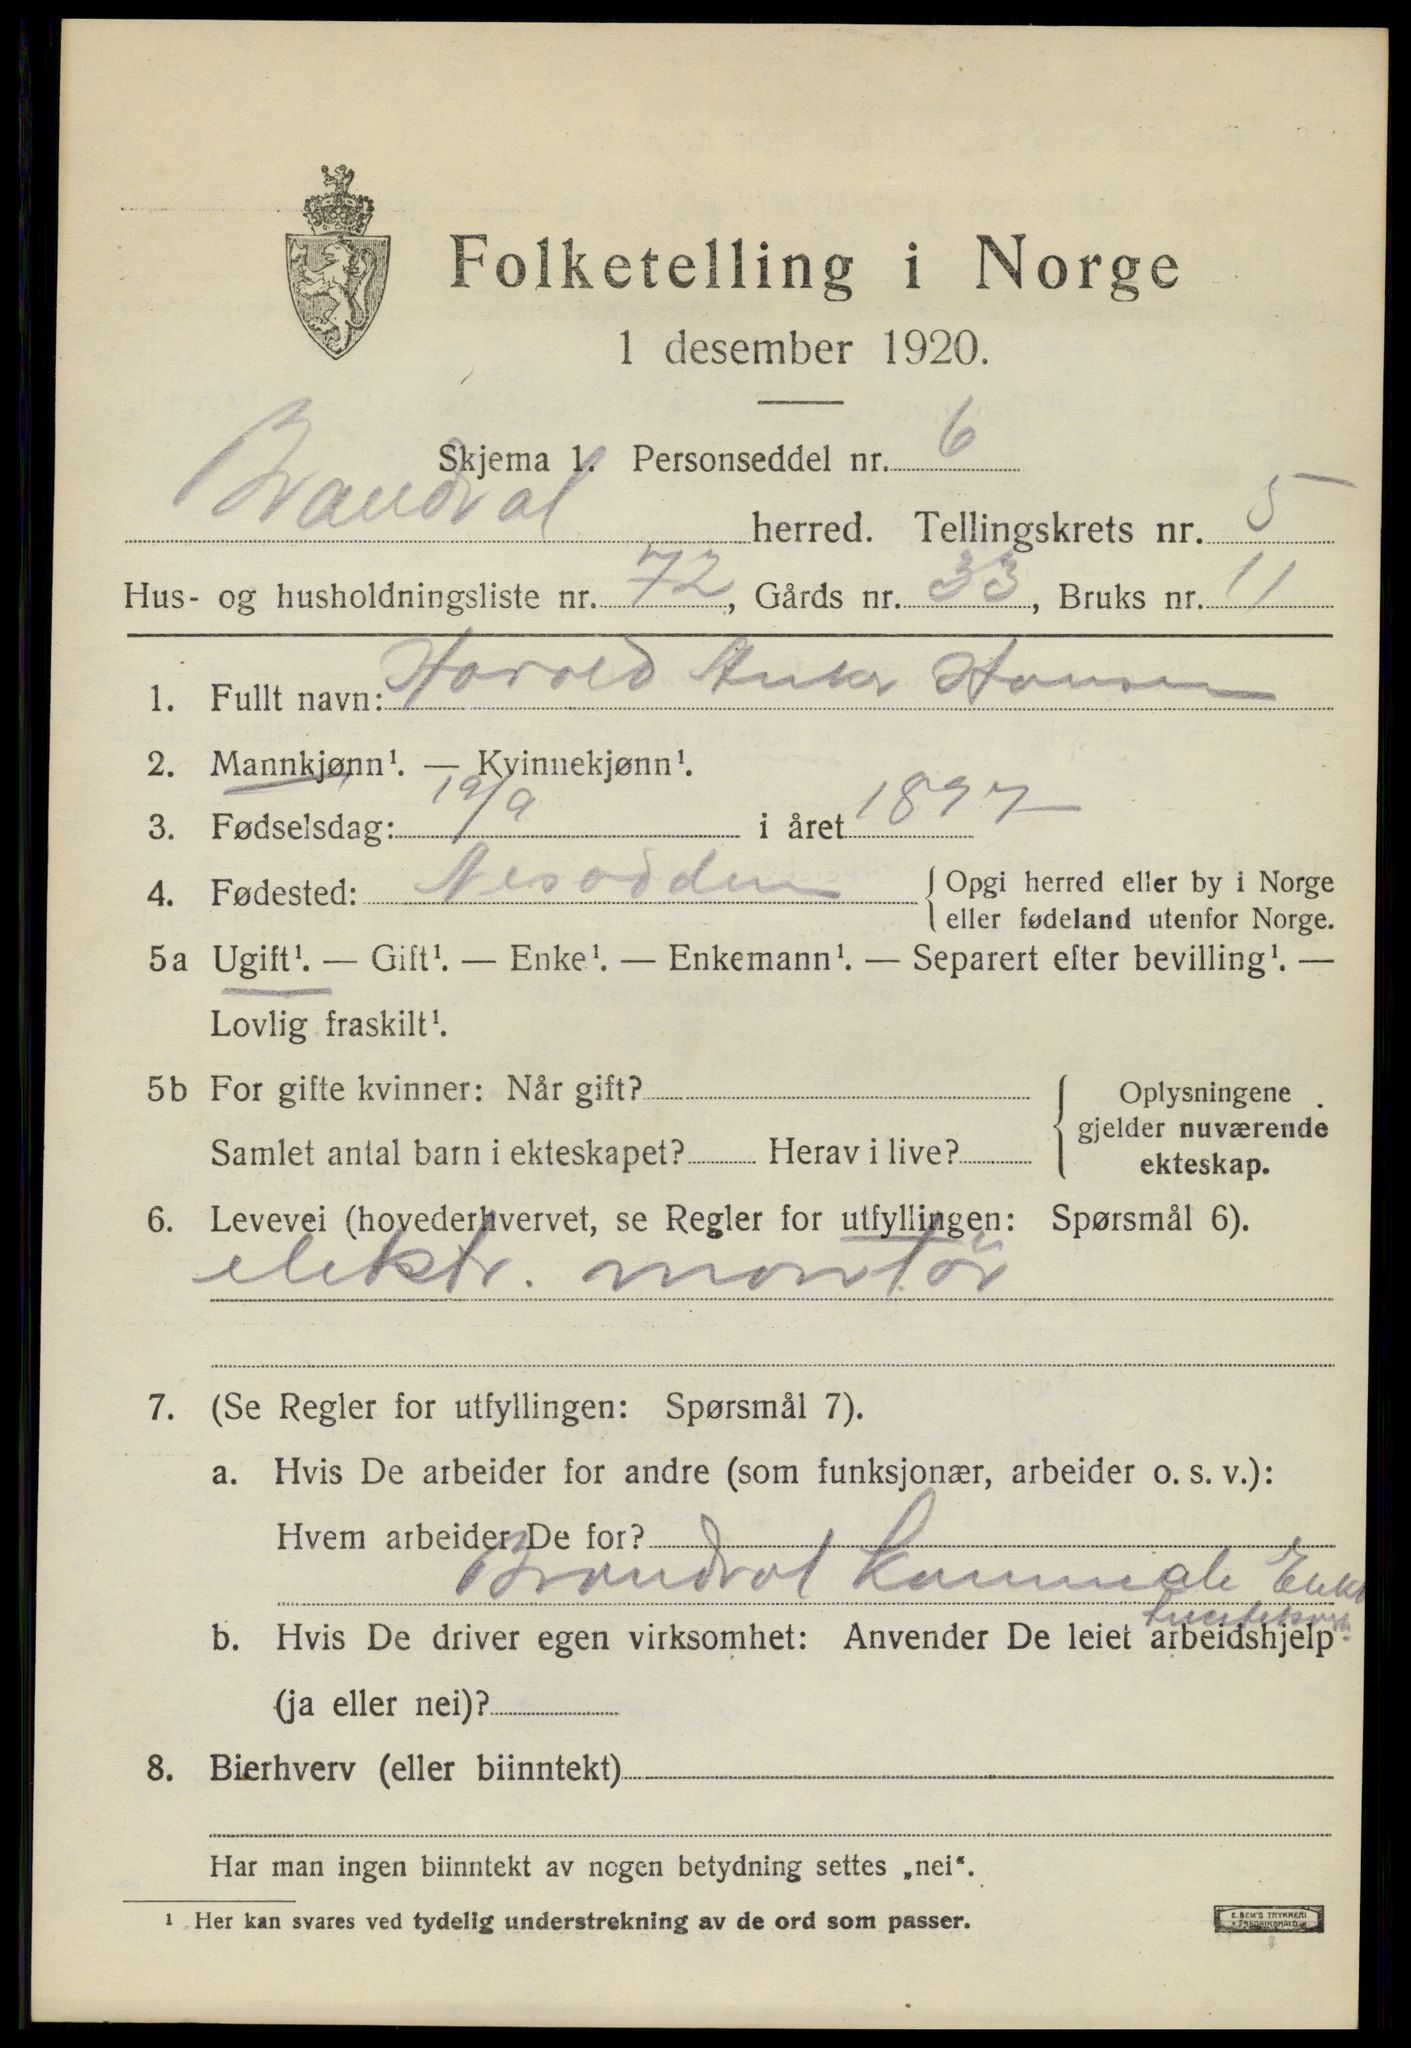 Folketelling i Norge
1 desember 1920.
Skjema 1. Personseddel nr. 6
Brandval herred. Tellingskrets nr. 5
Hus- og husholdningsliste nr. 72, Gårds nr. 33, Bruks nr. 11
1. Fullt navn: Harold Anker Hansen
2. Mannkjønn¹. — Kvinnekjønn¹.
3. Fødselsdag: 19/9 i året 1897
4. Fødested: Nesodden { Opgi herred eller by i Norge
eller fødeland utenfor Norge.
5a Ugift¹. — Gift¹. — Enke¹. — Enkemann¹. — Separert efter bevilling¹. —
Lovlig fraskilt¹.
5b For gifte kvinner: Når gift?
Samlet antal barn i ekteskapet? Herav i live?
{ Oplysningene
gjelder nuværende
ekteskap.
6. Levevei (hovederhvervet, se Regler for utfyllingen: Spørsmål 6).
elektr. montör
7. (Se Regler for utfyllingen: Spørsmål 7).
a. Hvis De arbeider for andre (som funksjonær, arbeider o. s. v.):
Hvem arbeider De for?
Brandval
b. Hvis De driver egen virksomhet: Anvender De leiet arbeidshjelp
(ja eller nei)?
8. Bierhverv (eller biinntekt)
Har man ingen biinntekt av nogen betydning settes „nei“.
¹ Her kan svares ved tydelig understrekning av de ord som passer.
E. SEM'S TRYKKERI
FREDRIKSHALD